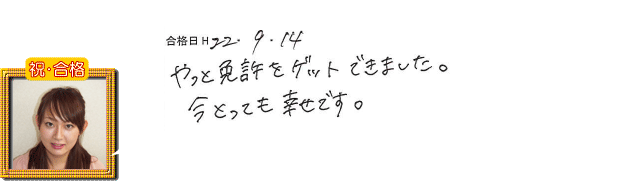 合格日 H22.9.14
祝・合格
やっと免許をゲットできました。
今とっても幸せです。